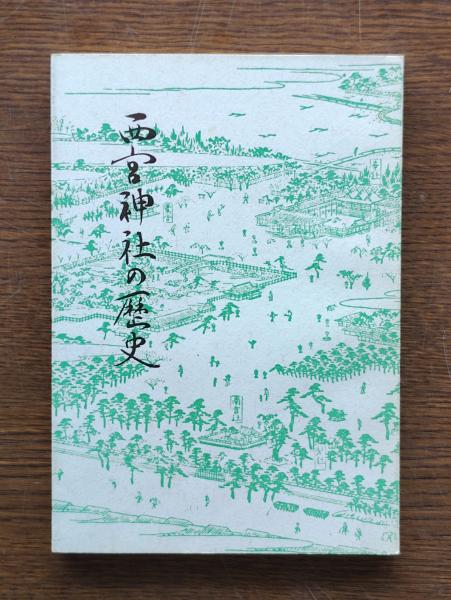 西宮神社の歴史